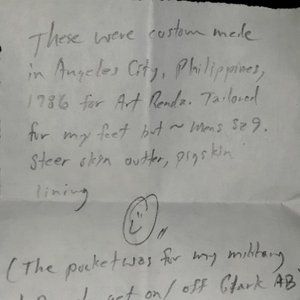 These were custom made
in Angeles City, Philippines,
1986 for Art Renda. Tailored
for my feet but ~ mens sz 9.
Steer skin outter, pigskin
lining
(The pocket was for my military
get on/ off Clark AB